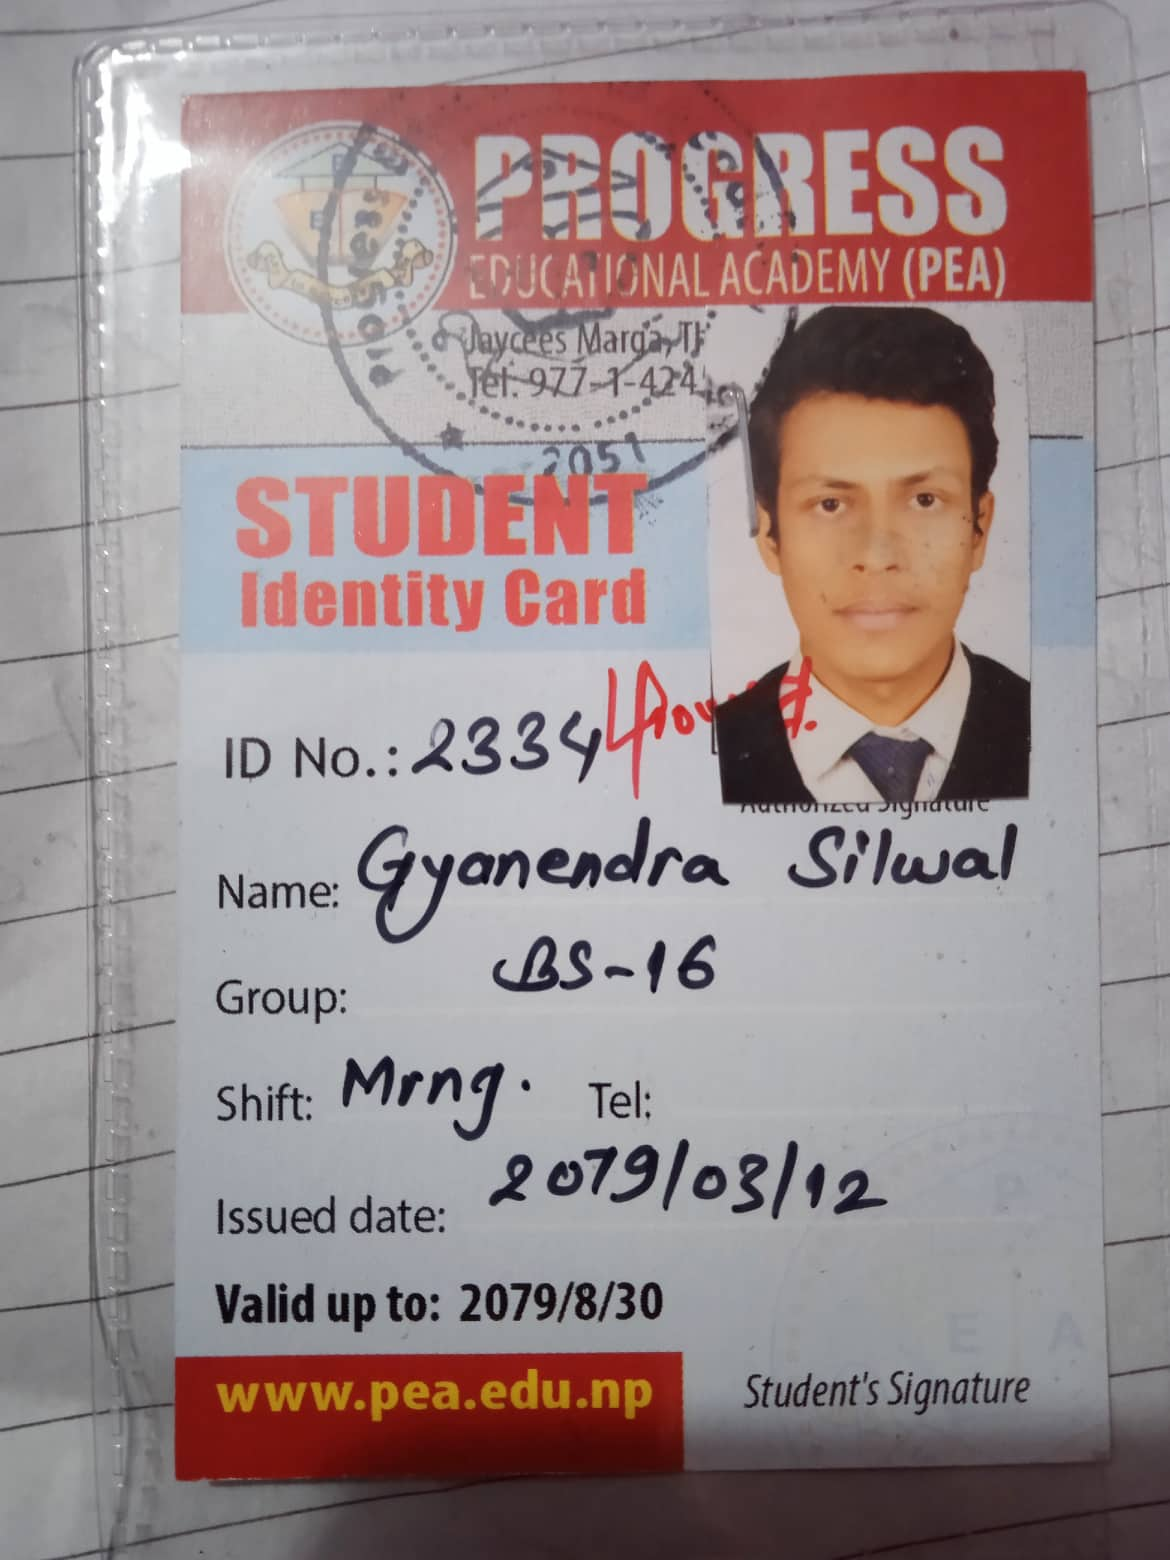 PROGRESS
EDUCATIONAL ACADEMY (PEA)
Jaycees Marga,
Tel: 977-1-424
2051
STUDENT
Identity Card
ID No.: 2334
Authorized Signature
Name: Gyanendra Silwal
Group: BS-16
Shift: Mrng. Tel:
Issued date: 2079/03/12
Valid up to: 2079/8/30
www.pea.edu.np
Student's Signature